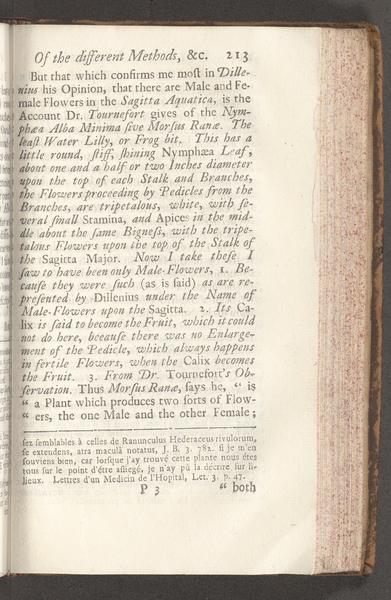 Of the different Methods, &c. 213
But that which confirms me moſt in Dille-
nius his Opinion, that there are Male and Fe-
male Flowers in the Sagitta Aquatica, is the
Account Dr. Tournefort gives of the Nym-
phæa Alba Minima ſive Morſus Ranæ. The
leaſt Water Lilly, or Frog bit. This has a
little round, ſtiff, ſhining Nymphæa Leaf,
about one and a half or two Inches diameter
upon the top of each Stalk and Branches,
the Flowers proceeding by Pedicles from the
Branches, are tripetalous, white, with ſe-
veral ſmall Stamina, and Apices in the mid-
dle about the ſame Bigneſs, with the tripe-
talous Flowers upon the top of the Stalk of
the Sagitta Major. Now I take theſe I
ſaw to have been only Male-Flowers, 1. Be-
cauſe they were ſuch (as is ſaid) as are re-
preſented by Dillenius under the Name of
Male-Flowers upon the Sagitta. 2. Its Ca-
lix is ſaid to become the Fruit, which it could
not do here, becauſe there was no Enlarge-
ment of the Pedicle, which always happens
in fertile Flowers, when the Calix becomes
the Fruit. 3. From Dr. Tournefort's Ob-
ſervation. Thus Morſus Ranæ, ſays he, " is
" a Plant which produces two ſorts of Flow-
" ers, the one Male and the other Female;
ſez ſemblables à celles de Ranunculus Hederaceus rivulorum,
ſe extendens, atra maculâ notatus, J. B. 3. 782. ſi je m'en
ſouviens bien, car lorſque j'ay trouvé cette plante nous étes
tous ſur le point d'étre aſſiegé, je n'ay pû la décrire ſur li-
lieux. Lettres d'un Medicin de l'Hopital, Let. 3. p. 47.
P 3 " both